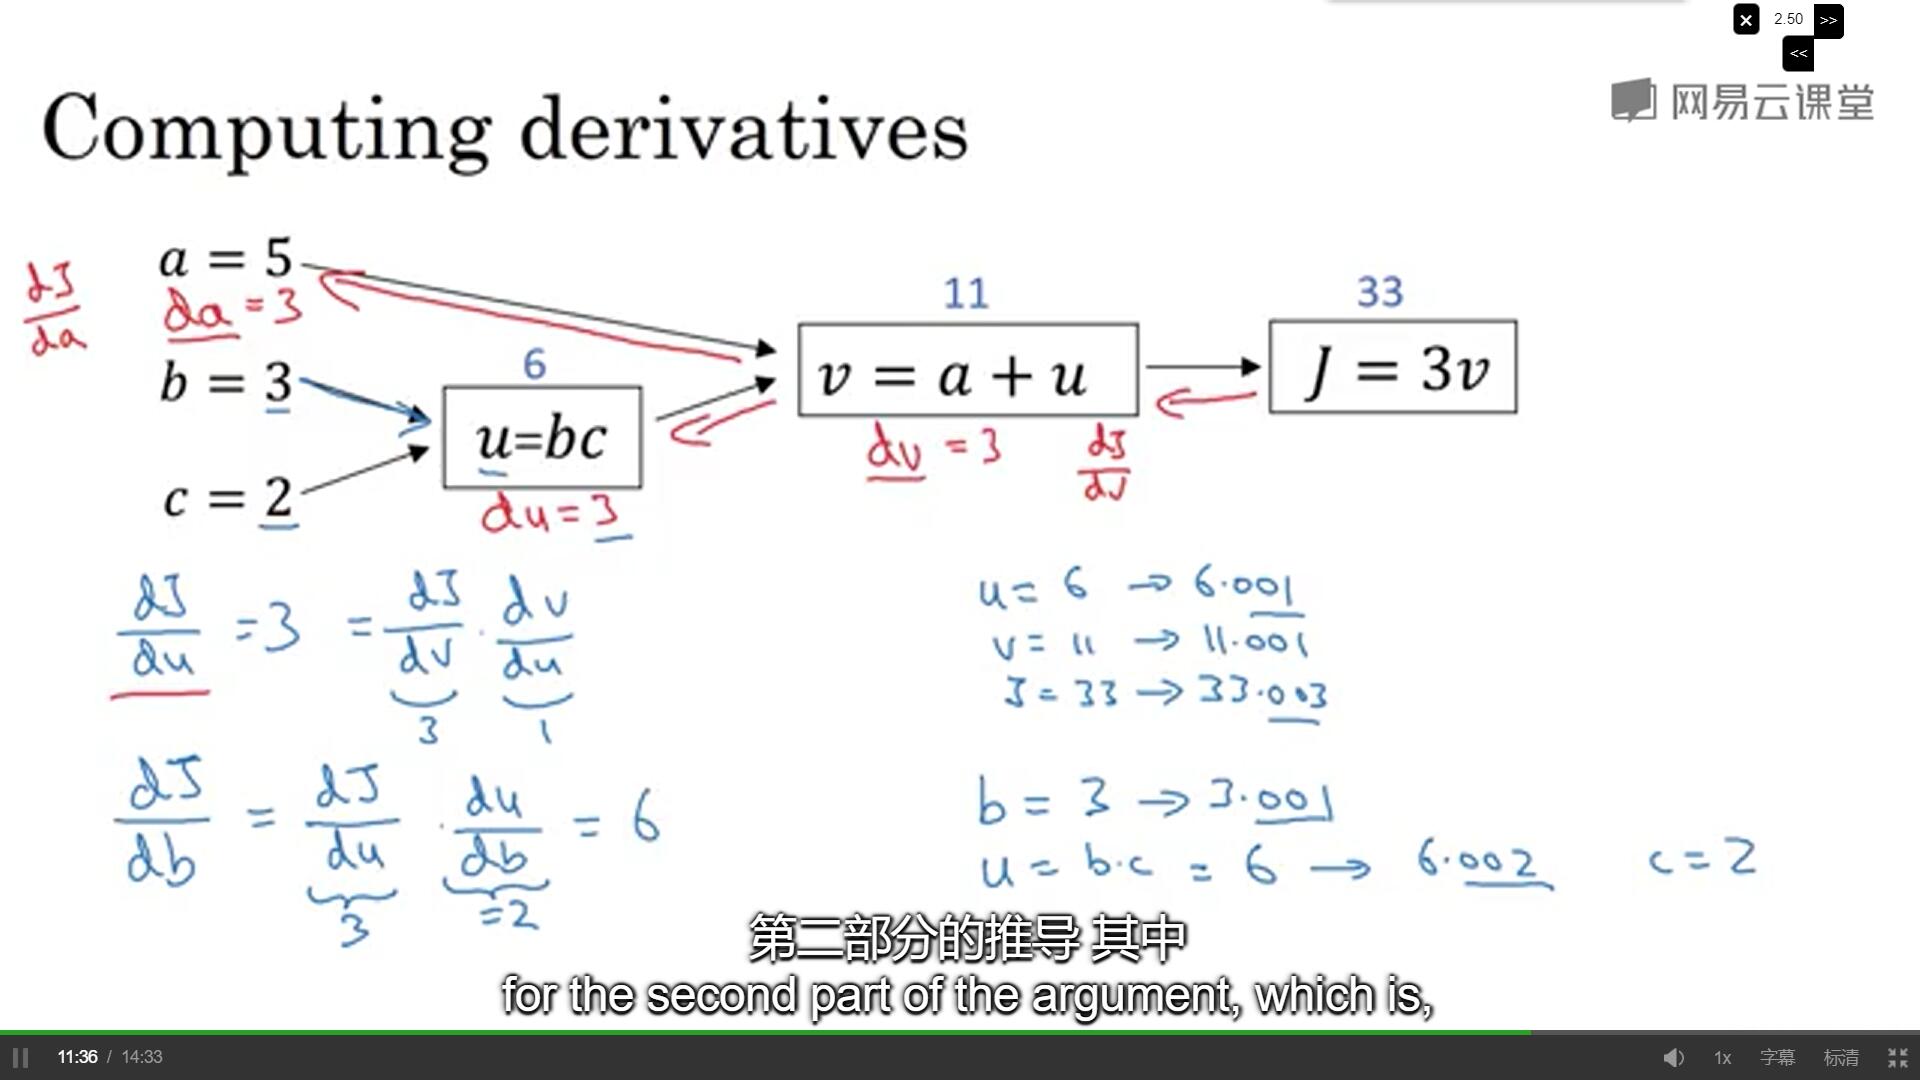 × 2.50 >>
<<
网易云课堂
Computing derivatives
a = 5
dJ/da
da = 3
b = 3
c = 2
6
u=bc
du = 3
11
v = a + u
dv = 3
dJ/dv
33
J = 3v
dJ/du = 3 = dJ/dv · dv/du
3 1
dJ/db = dJ/du · du/db = 6
3 =2
u = 6 → 6.001
v = 11 → 11.001
J = 33 → 33.003
b = 3 → 3.001
u = b·c = 6 → 6.002 c = 2
第二部分的推导 其中
for the second part of the argument, which is,
11:36 / 14:33 1x 字幕 标清